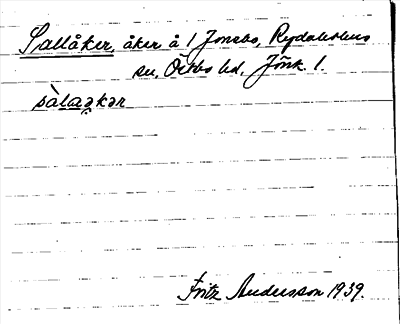 Sallåker, åker å 1 Jonsbo, Rydaholms
sn, Östbo hd, Jönk. l.
sàlaəkər
Fritz Andersson 1939.